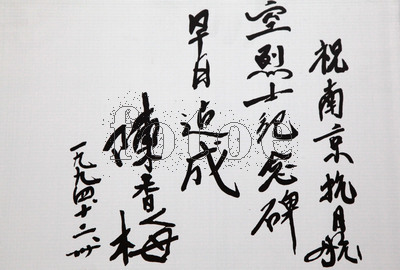 祝南京抗日航
空烈士纪念碑
早日造成
陳香梅
一九九四.十.二.卅
fotoe